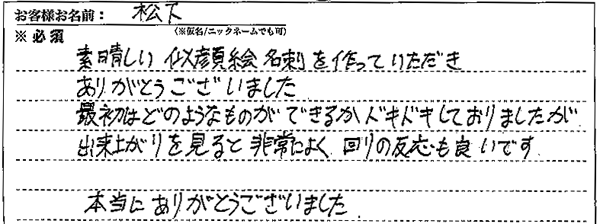 お客様お名前: 松下
※必須 (※仮名/ニックネームでも可)
素晴しい似顔絵名刺を作っていただき
ありがとうございました
最初はどのようなものができるかドキドキしておりましたが
出来上がりを見ると非常によく回りの反応も良いです
本当にありがとうございました